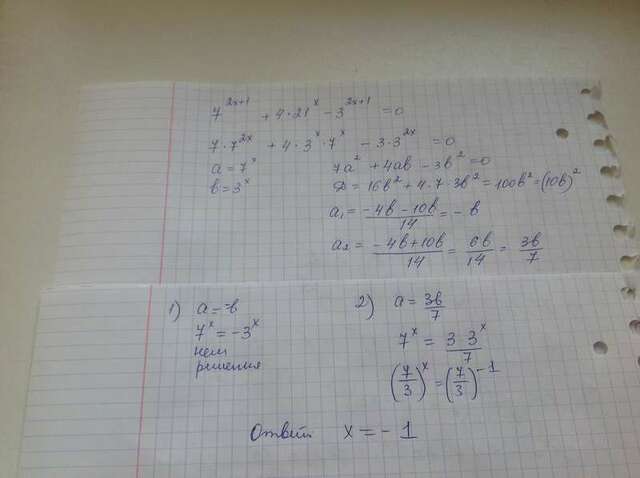 7^{2x+1} + 4·21^x − 3^{2x+1} = 0
7·7^{2x} + 4·3^x·7^x − 3·3^{2x} = 0
a = 7^x
b = 3^x
7a² + 4ab − 3b² = 0
D = 16b² + 4·7·3b² = 100b² = (10b)²
a₁ = (−4b − 10b)/14 = −b
a₂ = (−4b + 10b)/14 = 6b/14 = 3b/7
1) a = −b
7^x = −3^x
нет
решения
2) a = 3b/7
7^x = 3 3^x/7
(7/3)^x = (7/3)^{−1}
Ответ x = −1